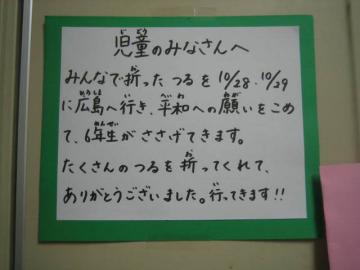 児童のみなさんへ
みんなで折ったつるを10/28.10/29
に広島へ行き、平和への願いをこめ
て、6年生がささげてきます。
たくさんのつるを折ってくれて、
ありがとうございました。行ってきます!!